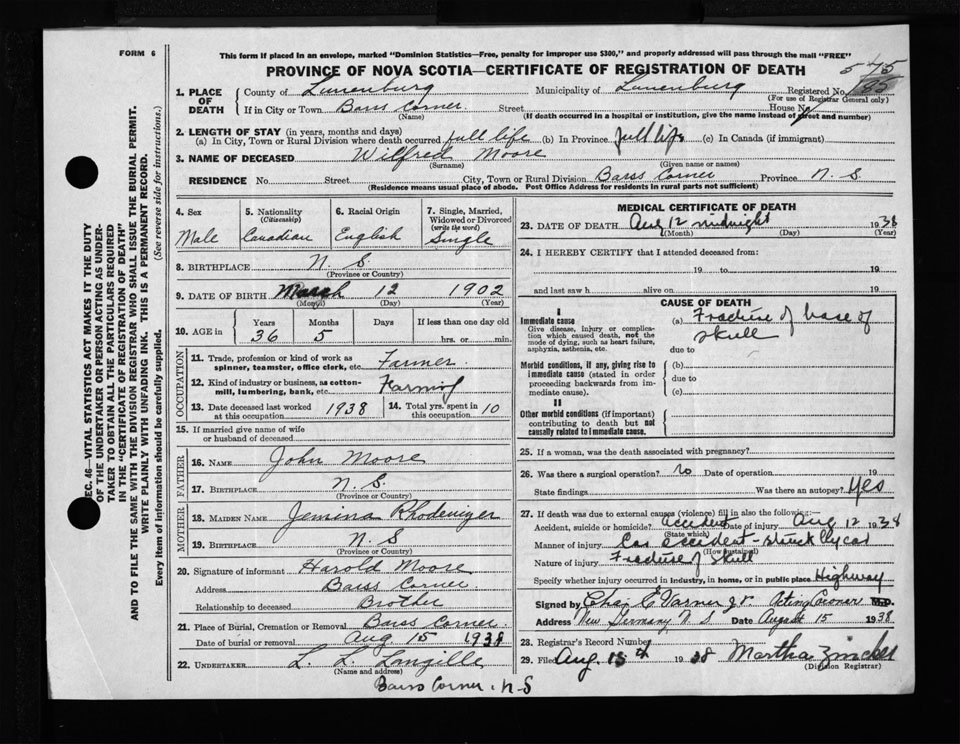 FORM 6
This form if placed in an envelope, marked "Dominion Statistics—Free, penalty for improper use $300," and properly addressed will pass through the mail "FREE"
PROVINCE OF NOVA SCOTIA—CERTIFICATE OF REGISTRATION OF DEATH
575
1. PLACE OF DEATH { County of Lunenburg Municipality of Lunenburg Registered No.
(For use of Registrar General only)
If in City or Town Barss Corner. Street House No.
(Name) (If death occurred in a hospital or institution, give the name instead of street and number)
2. LENGTH OF STAY (in years, months and days)
(a) In City, Town or Rural Division where death occurred full life (b) In Province full life (c) In Canada (if immigrant)
3. NAME OF DECEASED Wilfred Moore
(Surname) (Given name or names)
RESIDENCE No. Street City, Town or Rural Division Barss Corner Province N. S
(Residence means usual place of abode. Post Office Address for residents in rural parts not sufficient)
SEC. 46—VITAL STATISTICS ACT MAKES IT THE DUTY
OF THE UNDERTAKER OR PERSON ACTING AS UNDER-
TAKER TO OBTAIN ALL THE PARTICULARS REQUIRED
IN THE "CERTIFICATE OF REGISTRATION OF DEATH"
AND TO FILE THE SAME WITH THE DIVISION REGISTRAR WHO SHALL ISSUE THE BURIAL PERMIT.
WRITE PLAINLY WITH UNFADING INK. THIS IS A PERMANENT RECORD.
Every item of information should be carefully supplied. (See reverse side for instructions.)
4. Sex
Male
5. Nationality
(Citizenship)
Canadian
6. Racial Origin
English
7. Single, Married,
Widowed or Divorced
(write the word)
Single
8. BIRTHPLACE N. S
(Province or Country)
9. DATE OF BIRTH March 12 1902
(Month) (Day) (Year)
10. AGE in Years Months Days If less than one day old
36 5 hrs. or min.
OCCUPATION
11. Trade, profession or kind of work as
spinner, teamster, office clerk, etc. Farmer.
12. Kind of industry or business, as cotton-
mill, lumbering, bank, etc. Farming
13. Date deceased last worked
at this occupation 1938
14. Total yrs. spent in
this occupation 10
15. If married give name of wife
or husband of deceased
FATHER
16. NAME John Moore
17. BIRTHPLACE N. S.
(Province or Country)
MOTHER
18. MAIDEN NAME Jemima Rhodenizer
19. BIRTHPLACE N. S
(Province or Country)
20. Signature of informant Harold Moore
Address Barss Corner.
Relationship to deceased Brother
21. Place of Burial, Cremation or Removal Barss Corner.
Date of burial or removal Aug. 15 1938
22. UNDERTAKER L. L. Langille
(Name and address)
Barss Corner. N-S
MEDICAL CERTIFICATE OF DEATH
23. DATE OF DEATH Aug 12 midnight 1938
(Month) (Day) (Year)
24. I HEREBY CERTIFY that I attended deceased from:
19 to 19
and last saw h alive on 19
CAUSE OF DEATH
I
Immediate cause
Give disease, injury or complica-
tion which caused death, not the
mode of dying, such as heart failure,
asphyxia, asthenia, etc.
(a) Fracture of base of
skull
due to
Morbid conditions, if any, giving rise to
immediate cause (stated in order
proceeding backwards from im-
mediate cause).
(b)
due to
(c)
II
Other morbid conditions (if important)
contributing to death but not
causally related to immediate cause.
25. If a woman, was the death associated with pregnancy?
26. Was there a surgical operation? No Date of operation 19
State findings Was there an autopsy? Yes
27. If death was due to external causes (violence) fill in also the following:—
Accident, suicide or homicide? accident Date of injury Aug 12 1938
(State which)
Manner of injury Car accident - struck by car
(How sustained)
Nature of injury Fracture of skull
Specify whether injury occurred in industry, in home, or in public place Highway
Signed by Chas. E Varner Jr. Acting Coroner M.D.
Address New Germany N. S Date August 15 1938
28. Registrar's Record Number
29. Filed Aug. 15th 1938 Martha Zinck
(Division Registrar)